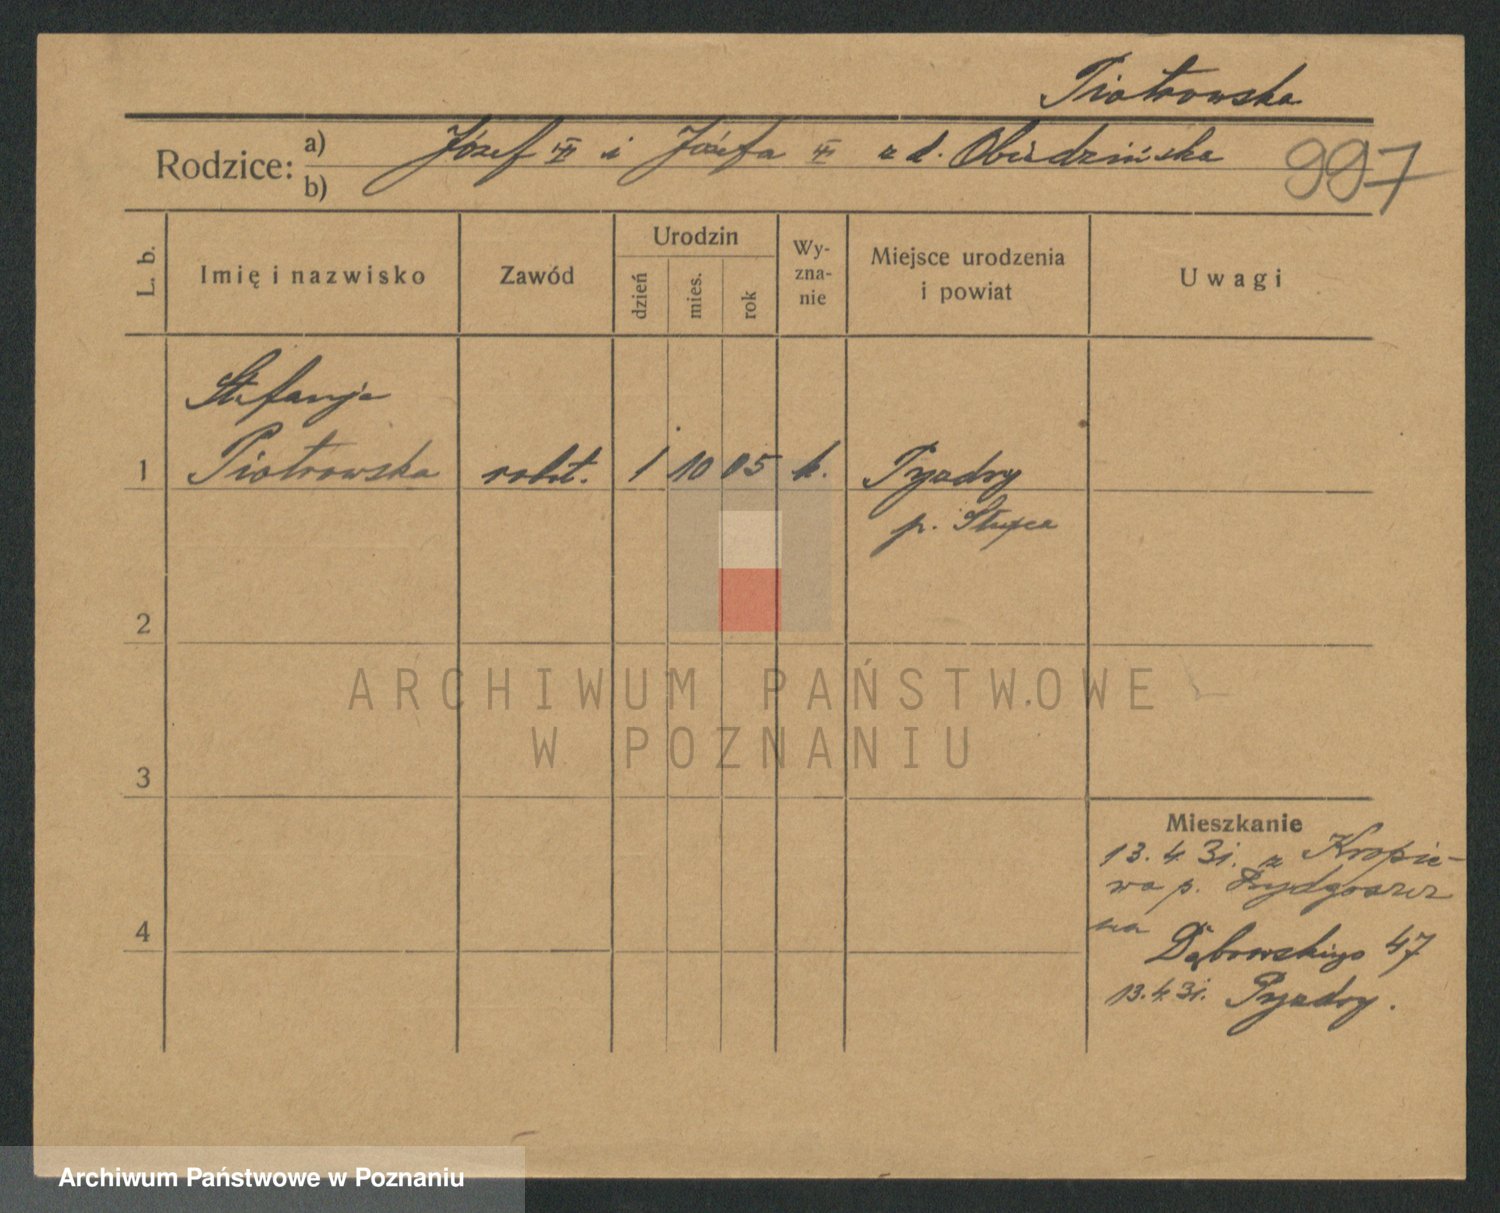 Piotrowska
Rodzice: a) Józef i Józefa z d. Obidzińska
b)
997
L. b. Imię i nazwisko Zawód Urodzin dzień mies. rok Wy-zna-nie Miejsce urodzenia i powiat Uwagi
Stefanja
1 Piotrowska robot. 1 10 05 k. Pyzdry
p. Słupca
2
ARCHIWUM PAŃSTWOWE
W POZNANIU
3
Mieszkanie
13. 4. 31. z Kropie-
wa p. Bydgoszcz
4
na Dąbrowskiego 47
13. 4. 31. Pyzdry.
Archiwum Państwowe w Poznaniu